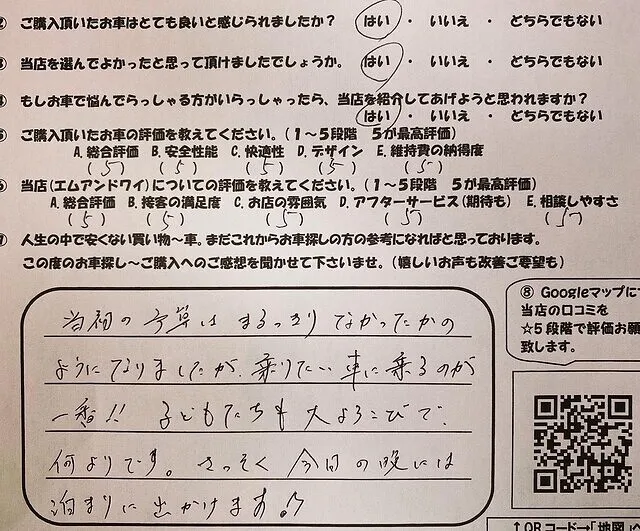 ② ご購入頂いたお車はとても良いと感じられましたか？ はい ・ いいえ ・ どちらでもない
③ 当店を選んでよかったと思って頂けましたでしょうか。 はい ・ いいえ ・ どちらでもない
もしお車で悩んでらっしゃる方がいらっしゃったら、当店を紹介してあげようと思われますか？
はい ・ いいえ ・ どちらでもない
ご購入頂いたお車の評価を教えてください。（１～５段階 ５が最高評価）
A. 総合評価 B. 安全性能 C. 快適性 D. デザイン E. 維持費の納得度
(5) (5) (5) (5) (5)
当店(エムアンドワイ)についての評価を教えてください。（１～５段階 ５が最高評価）
A. 総合評価 B. 接客の満足度 C. お店の雰囲気 D. アフターサービス(期待も) E. 相談しやすさ
(5) (5) (5) (5) (5)
人生の中で安くない買い物～車。まだこれからお車探しの方の参考になればと思っております。
この度のお車探し～ご購入へのご感想を聞かせて下さいませ。（嬉しいお声も改善ご要望も）
当初の予算は まるっきり でなかったかの
ようにでなりましたが、乗りたい車に乗るのが
一番!! 子どもたちも 大よろこびで、
何よりです。さっそく 今日の晩には
泊まりに出かけます♪
⑧ Googleマップに
当店の口コミを
☆５段階で評価お願
致します。
↑QRコード→「地図」